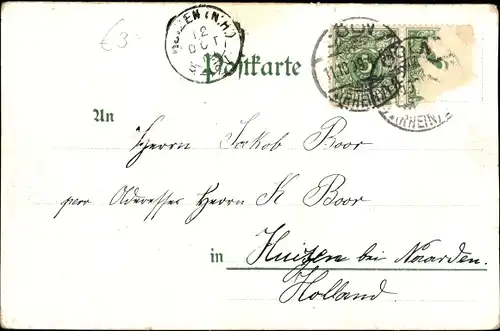 €3
HUIZEN (N.H.)
12
OCT
BONN
11.10
(RHEIN)
(RHEIN)
Postkarte
An
Herrn Jakob Boor
per Adresse Herrn K Boor
in Huizen bei Naarden.
Holland.